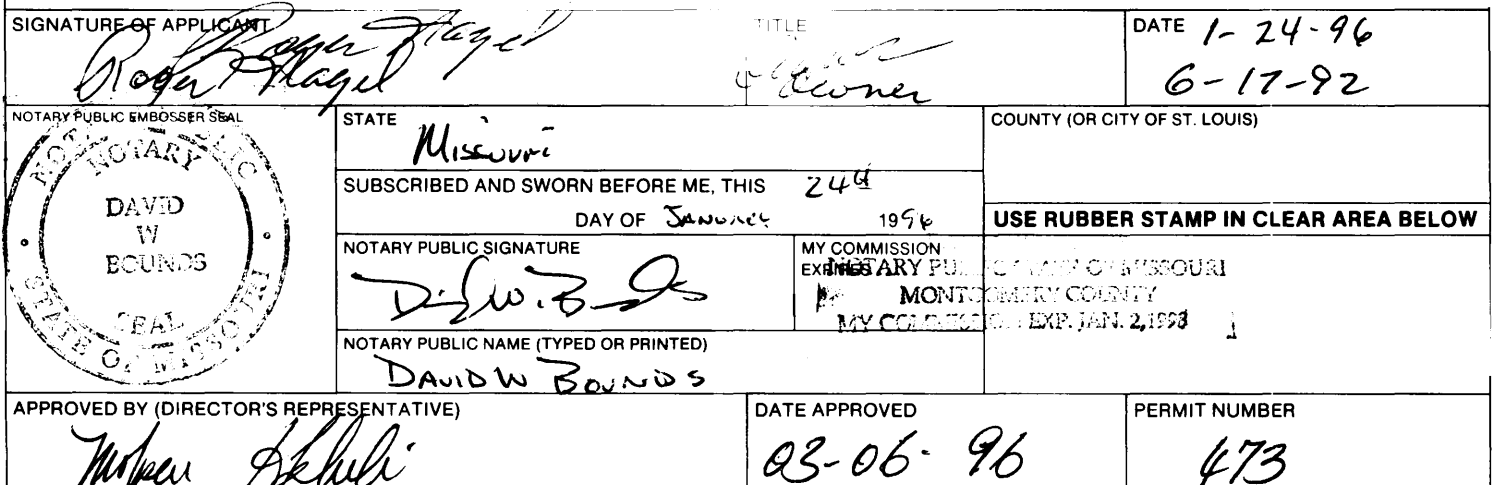 SIGNATURE OF APPLICANT
Roger
Roger
TITLE
Owner
DATE 1-24-96
6-17-92
NOTARY PUBLIC EMBOSSER SEAL
NOTARY PUBLIC
NOTARY
DAVID
W
BOUNDS
SEAL
STATE OF MISSOURI
STATE
Missouri
SUBSCRIBED AND SWORN BEFORE ME, THIS 24th
DAY OF January 1996
COUNTY (OR CITY OF ST. LOUIS)
USE RUBBER STAMP IN CLEAR AREA BELOW
NOTARY PUBLIC SIGNATURE
David W. Bounds
MY COMMISSION
EXPIRES
NOTARY PUBLIC STATE OF MISSOURI
MONTGOMERY COUNTY
MY COMMISSION EXP. JAN. 2,1998
NOTARY PUBLIC NAME (TYPED OR PRINTED)
DAVID W BOUNDS
APPROVED BY (DIRECTOR'S REPRESENTATIVE)
DATE APPROVED
03-06-96
PERMIT NUMBER
473